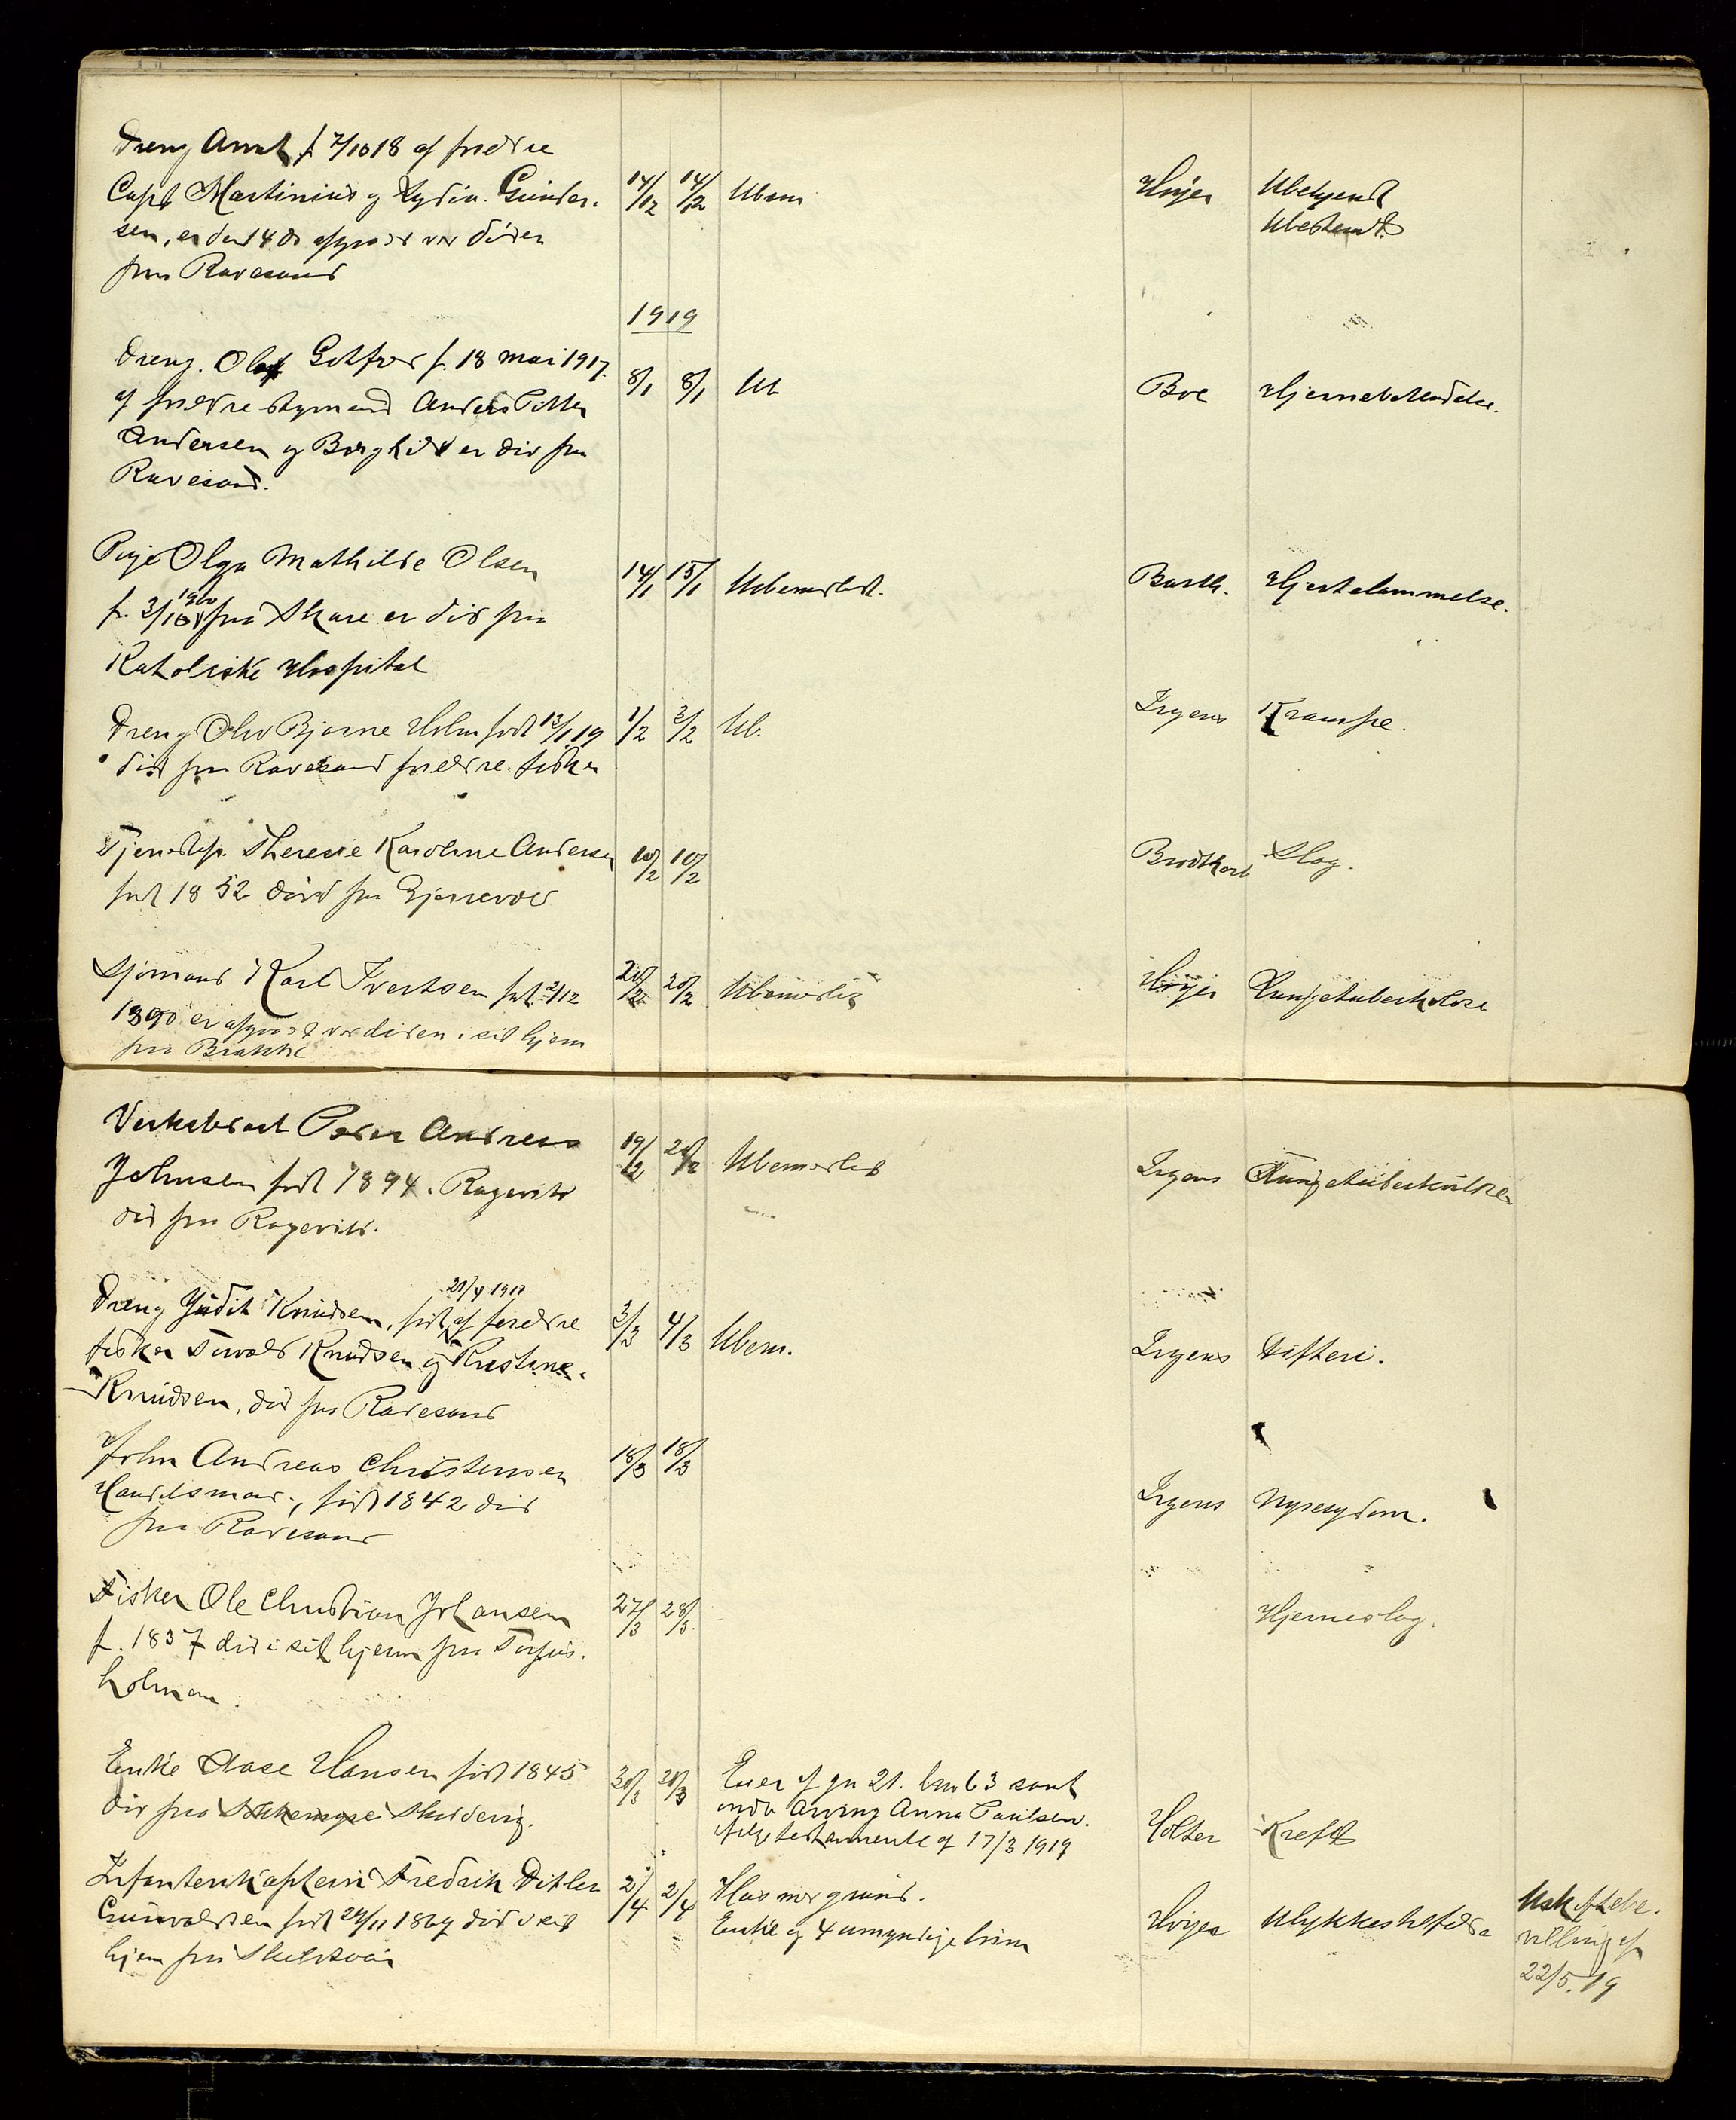 Dreng Arnt f 7/10 18 af foreldre
Capt Martinius og Lydia Gunder-
sen, er den 14 ds afgaad ved døden
fra Ravesand
14/12 14/12 Ubem
Høyer Ubekjendt
Ubestemt
1919
Dreng. Olaf Gotfred f. 18 mai 1917.
af foreldre styrmand Anders Petter
Andersen og Borghild er død fra
Ravesand.
8/1 8/1 Ub
Boe Hjernebetendelse.
Pige Olga Mathilde Olsen
1900
f. 3/10 fra Skare er død fra
Katoliske Hospital
14/1 15/1 Ubemerket.
Barth. Hjertelammelse.
Dreng Olav Bjarne Holm født 13/1 19
død fra Ravesand foreldre fisker
1/2 3/2 Ub.
Irgens Krampe.
Tjenestep. Theresie Karoline Andersen
født 1852 død fra Gjessevold
10/2 10/2
Brodtkorb Slag.
Sjømand Karl Ivertsen født 2/12
1890 er afgaad ved døden i sit hjem
fra Brakke
20/2 20/2
Høyer Lungetuberkolose
Verksbrart Peder Andreas
Johnsen født 1894. Ragevik
død fra Ragevik.
19/2 20/2 Ubemerket
Irgens Lungetuberkulose
21/4 1911
Dreng Judit Knudsen, født af foreldre
fisker Tervald Knudsen og Kristine
Knudsen, død fra Ravesand
3/3 4/3 Ubem.
Irgens Difteri.
John Andreas Christensen
Handelsmand, født 1842 død
fra Ravesand
18/3 18/3
Irgens Nyresygdom.
Fisker Ole Christian Johansen
f. 1837 død i sit hjem fra Torjus-
holmen.
27/3 28/3
Hjerneslag.
Enke Aase Hansen født 1845
død fra Skuderig.
20/3 20/3 Eier af gn 21. bno 63 samt
Arving Anna Paulsen.
ifølge testamente af 17/3 1919
Holter Kreft
Infanterikaptein Fredrik Ditlev
Grünvaldsen født 24/11 1869 død i sit
hjem fra Skilsøen
2/4 2/4 Hus med grund.
Enke og 4 umyndige børn
Høyer Ulykkestilfælde
Usk. ifl. be-
villing af
22/5.19